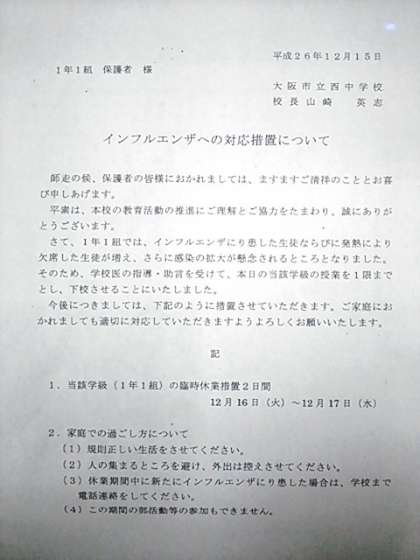 平成26年12月15日
1年1組　保護者　様
大阪市立西中学校
校長山崎　英志
インフルエンザへの対応措置について
師走の候、保護者の皆様におかれましては、ますますご清祥のこととお喜
び申しあげます。
平素は、本校の教育活動の推進にご理解とご協力をたまわり、誠にありが
とうございます。
さて、1年1組では、インフルエンザにり患した生徒ならびに発熱により
欠席した生徒が増え、さらに感染の拡大が懸念されるところとなりました。
そのため、学校医の指導・助言を受けて、本日の当該学級の授業を1限まで
とし、下校させることにいたしました。
今後につきましては、下記のように措置させていただきます。ご家庭にお
かれましても適切に対応していただきますようよろしくお願いいたします。
記
1．当該学級（1年1組）の臨時休業措置2日間
12月16日（火）～12月17日（水）
2．家庭での過ごし方について
（1）規則正しい生活をさせてください。
（2）人の集まるところを避け、外出は控えさせてください。
（3）休業期間中に新たにインフルエンザにり患した場合は、学校まで
電話連絡をしてください。
（4）この期間の部活動等の参加もできません。